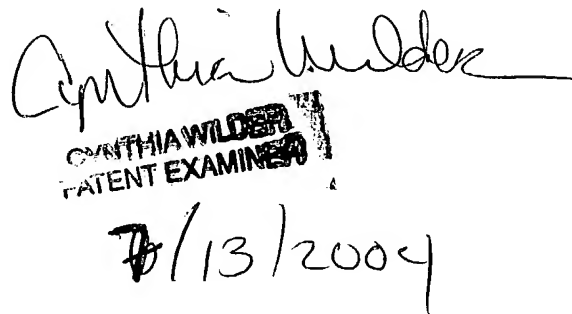 Cynthia Wilder
CYNTHIA WILDER
PATENT EXAMINER
7/13/2004